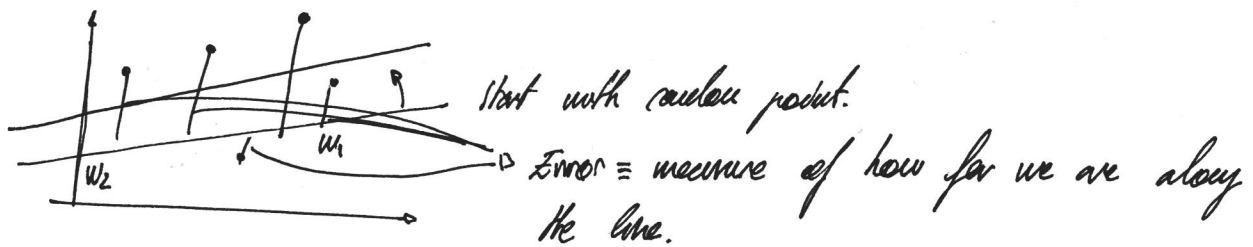 Start with random point.
W1
W2
Error ≡ measure of how far we are along
the line.